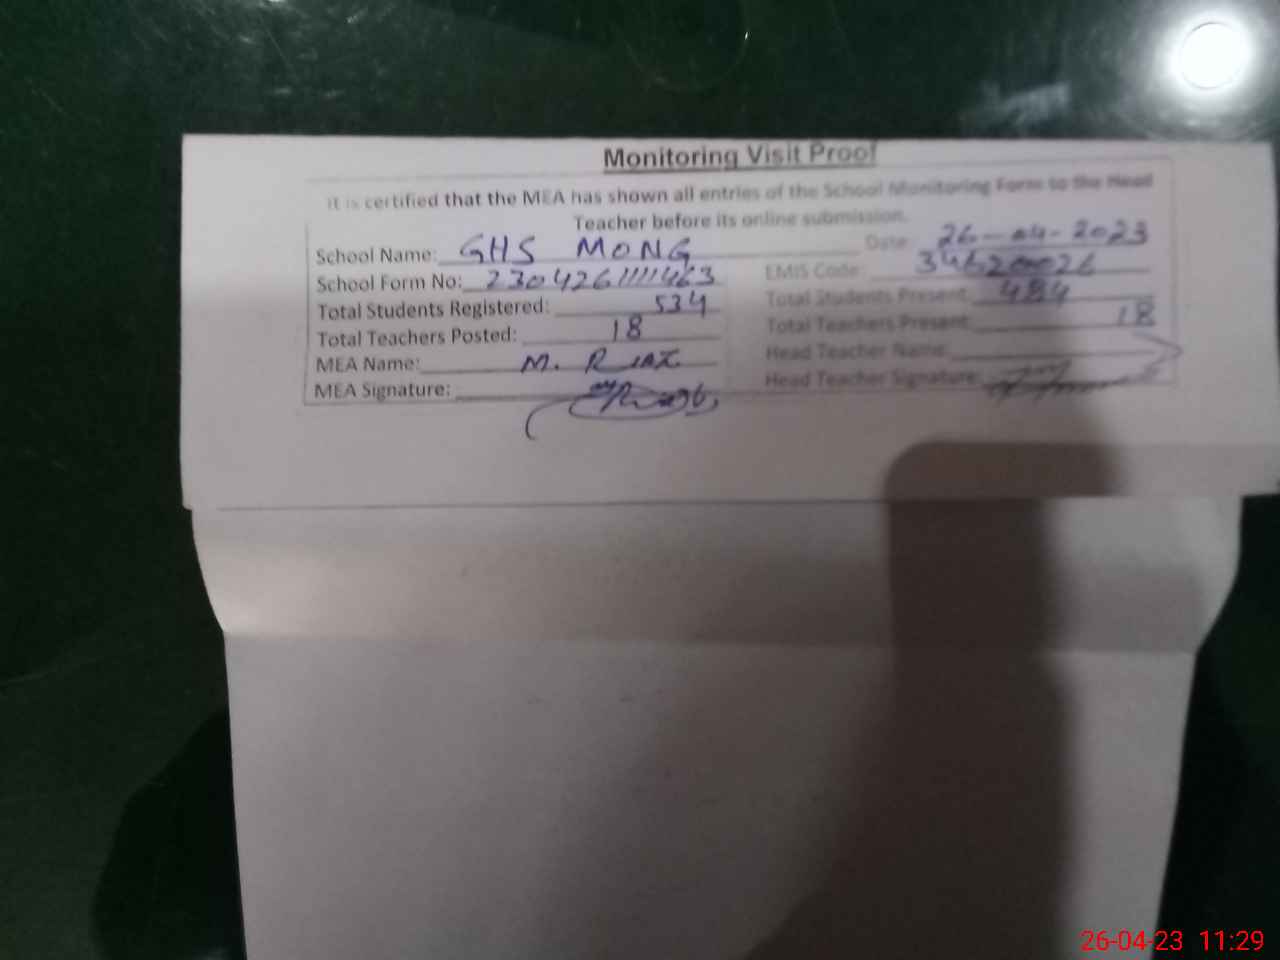 Monitoring Visit Proof
It is certified that the MEA has shown all entries of the School Monitoring Form to the Head
Teacher before its online submission.
School Name: GHS MONG Date: 26-04-2023
School Form No: 23042611111463 EMIS Code: 34620026
Total Students Registered: 534 Total Students Present: 484
Total Teachers Posted: 18 Total Teachers Present: 18
MEA Name: M. RIAZ Head Teacher Name:
MEA Signature: Head Teacher Signature:
26-04-23 11:29